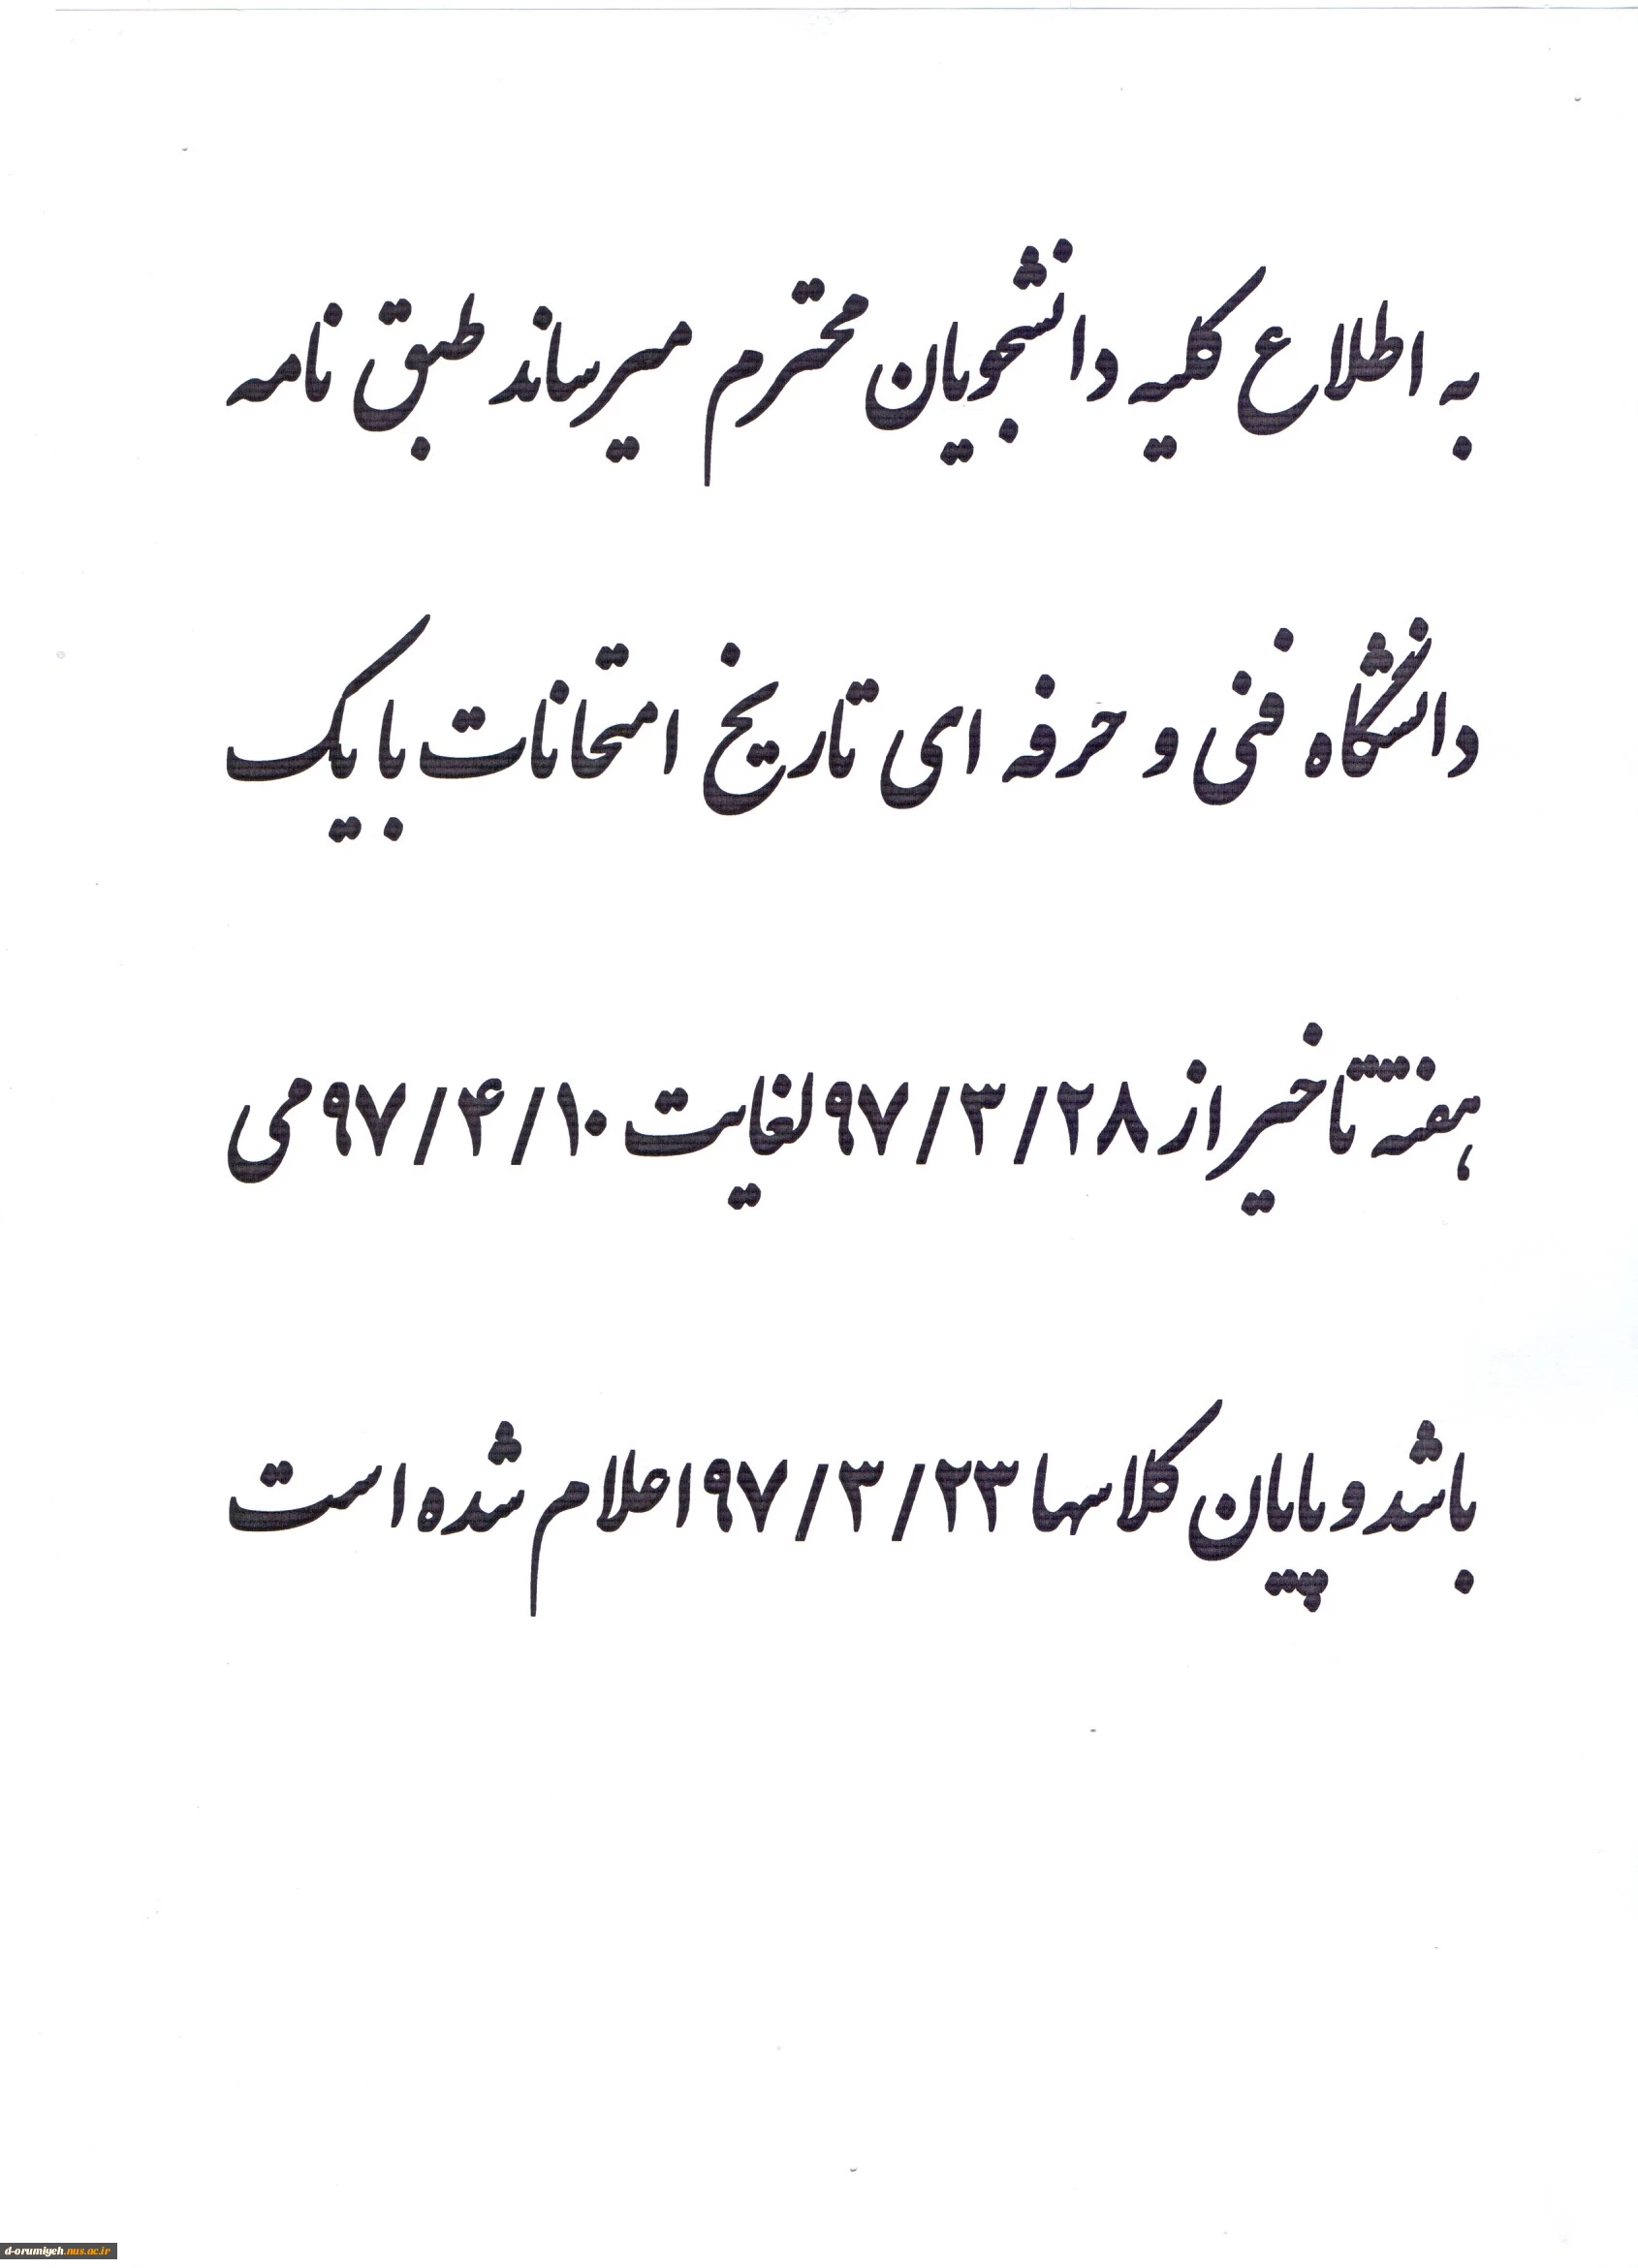 به اطلاع کلیه دانشجویان محترم میرساند طبق نامه
دانشگاه فنی و حرفه ای تاریخ امتحانات با یک
هفته تاخیر از ۹۷/۳/۲۸ لغایت ۹۷/۴/۱۰ می
باشد و پایان کلاسها ۹۷/۳/۲۳ اعلام شده است
d-orumiyeh.nus.ac.ir